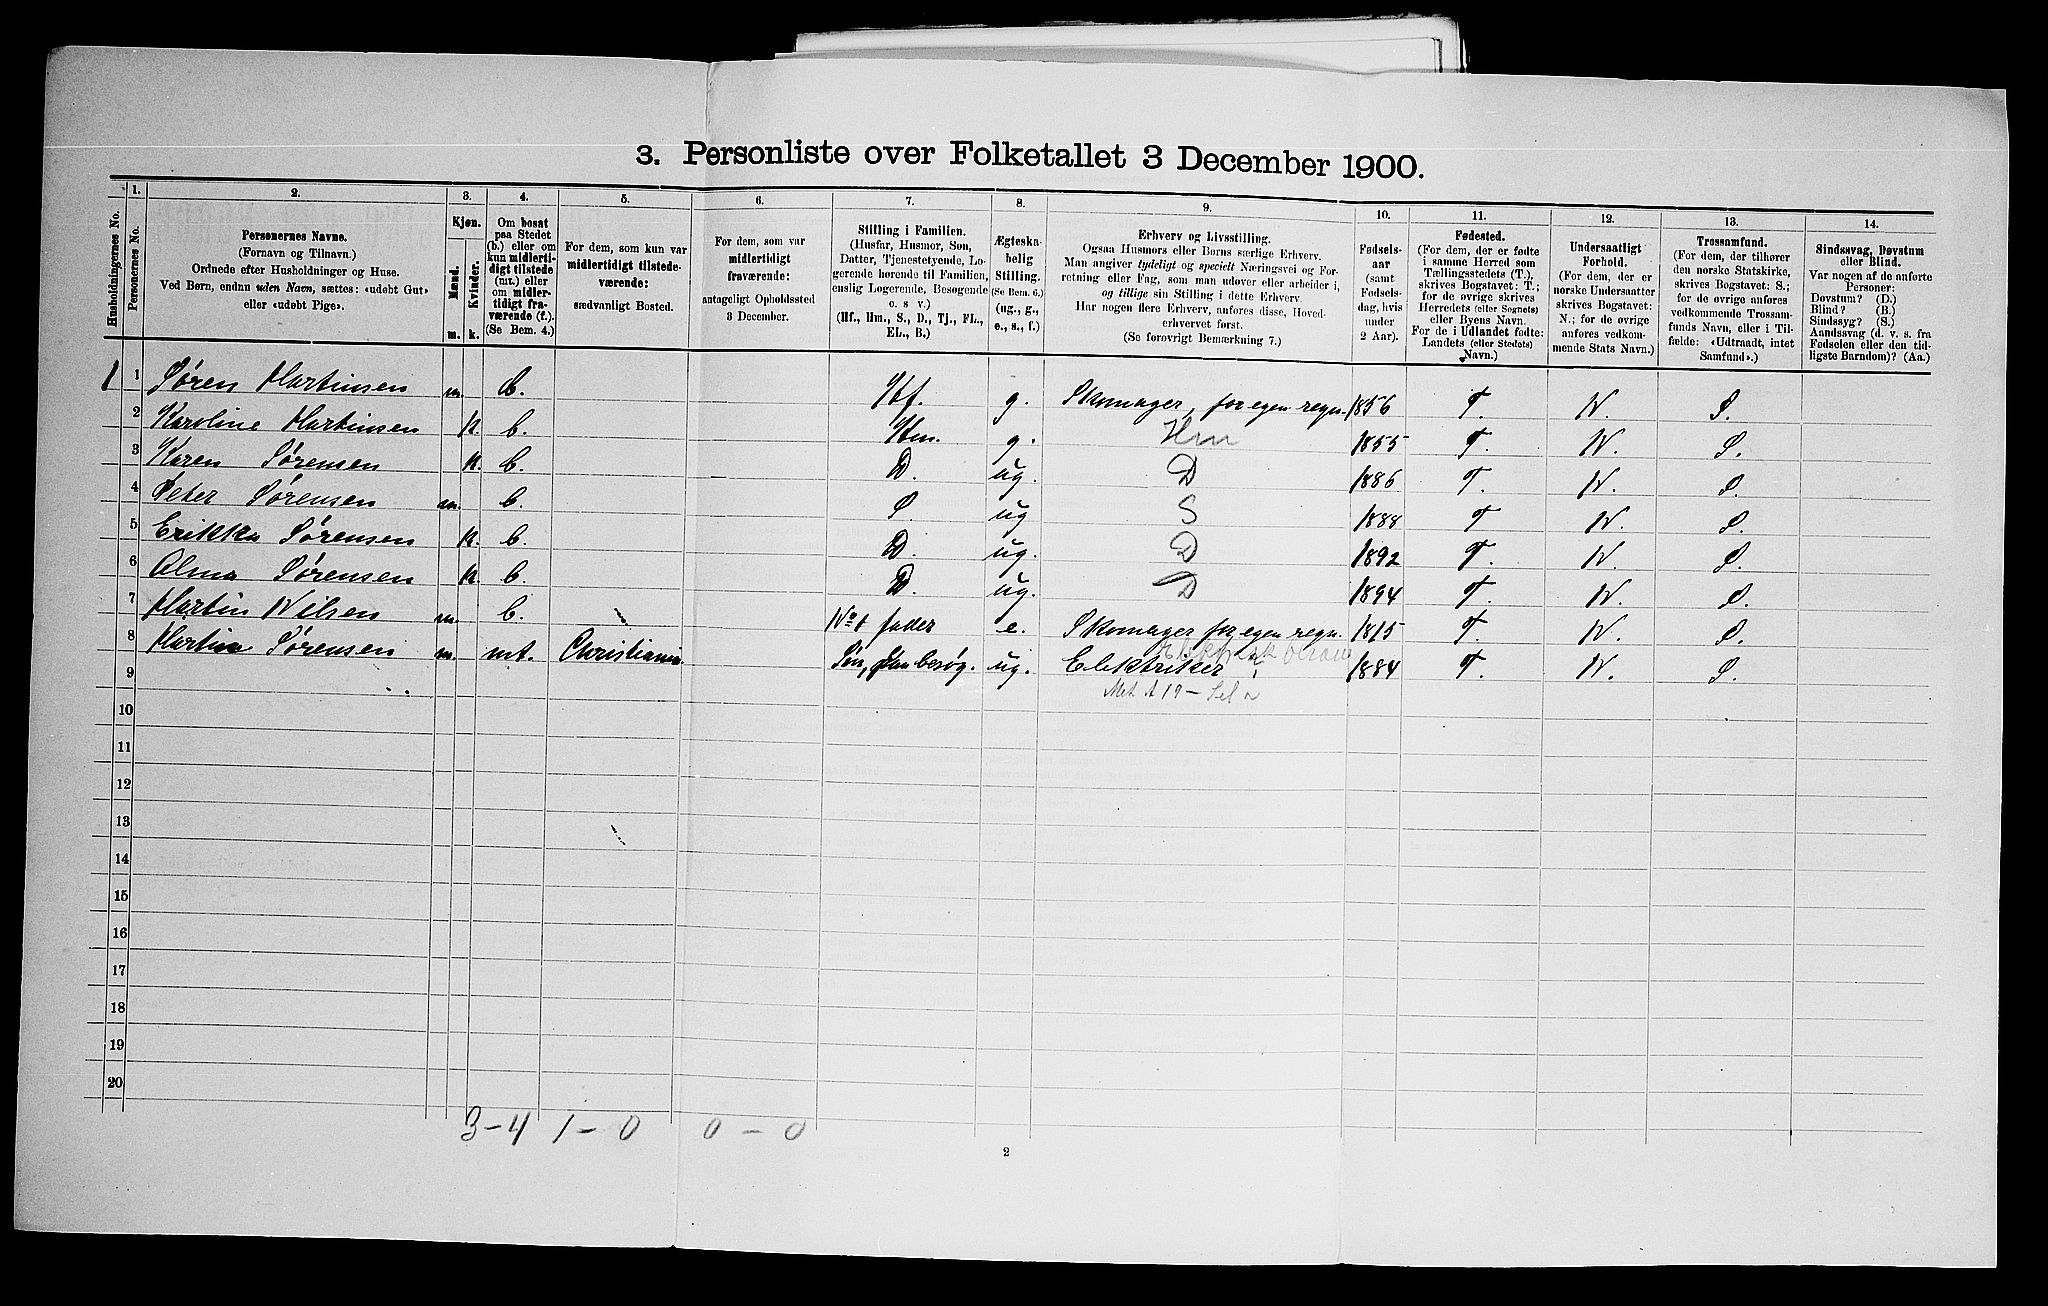 3. Personliste over Folketallet 3 December 1900.
1. 2. 3. 4. 5. 6. 7. 8. 9. 10. 11. 12. 13. 14.
Husholdningernes No.
Personernes No.
Personernes Navne.
(Fornavn og Tilnavn.)
Ordnede efter Husholdninger og Huse.
Ved Børn, endnu uden Navn, sættes: «udøbt Gut»
eller «udøbt Pige».
Kjøn.
Mænd.
Kvinder.
m. k.
Om bosat
paa Stedet
(b.) eller om
kun midlerti-
digt tilstede
(mt.) eller
om midler-
tidigt fra-
værende (f.).
(Se Bem. 4.)
For dem, som kun var
midlertidigt tilstede-
værende:
sædvanligt Bosted.
For dem, som var
midlertidigt
fraværende:
antageligt Opholdssted
3 December.
Stilling i Familien.
(Husfar, Husmor, Søn,
Datter, Tjenestetyende, Lo-
gerende hørende til Familien,
enslig Logerende, Besøgende
o. s v.)
(Hf., Hm., S., D., Tj., FL.,
EL., B.)
Ægteska-
belig
Stilling.
(Se Bem. 6.)
(ug., g.,
e., s., f.)
Erhverv og Livsstilling.
Ogsaa Husmors eller Børns særlige Erhverv.
Man angiver tydeligt og specielt Næringsvei og For-
retning eller Fag, som man udøver eller arbeider i,
og tillige sin Stilling i dette Erhverv.
Har nogen flere Erhverv, anføres disse, Hoved-
erhvervet først.
(Se forøvrigt Bemærkning 7.)
Fødsels-
aar
(samt
Fødsels-
dag, hvis
under
2 Aar).
Fødested.
(For dem, der er fødte
i samme Herred som
Tællingsstedets (T.),
skrives Bogstavet: T.;
for de øvrige skrives
Herredets (eller Sognets)
eller Byens Navn.
For de i Udlandet fødte:
Landets (eller Stedets)
Navn.)
Undersaatligt
Forhold.
(For dem, der er
norske Undersaatter
skrives Bogstavet:
N.; for de øvrige
anføres vedkom-
mende Stats Navn.)
Trossamfund.
(For dem, der tilhører
den norske Statskirke,
skrives Bogstavet: S.;
for de øvrige anføres
vedkommende Trossam-
funds Navn, eller i Til-
fælde: «Udtraadt, intet
Samfund».)
Sindssvag, Døvstum
eller Blind.
Var nogen af de anførte
Personer:
Døvstum? (D.)
Blind? (B.)
Sindssyg? (S.)
Aandssvag (d. v. s. fra
Fødselen eller den tid-
ligste Barndom)? (Aa.)
1 1 Søren Martinsen m. b. Hf. g. Skomager, for egen regn. 1856 T. N. S.
2 Karoline Martinsen k. b. Hm. g. Hm 1855 T. N. S.
3 Karen Sørensen k. b. D. ug. D 1886 T. N. S.
4 Peter Sørensen m. b. S. ug S 1888 T N. S.
5 Erikka Sørensen k. b. D. ug. D 1892 T. N. S.
6 Alma Sørensen k. b. D. ug. D 1894 T. N. S.
7 Martin Nilsen m. b. No 1 fader e. Skomager for egen regn. 1815 T. N. S.
8 Martin Sørensen m. mt. Christiania. Søn, paa besøg. ug. Elektriker 1884 T. N. S.
9
10
11
12
13
14
15
16
17
18
19
20
3-4 1-0 0-0
2